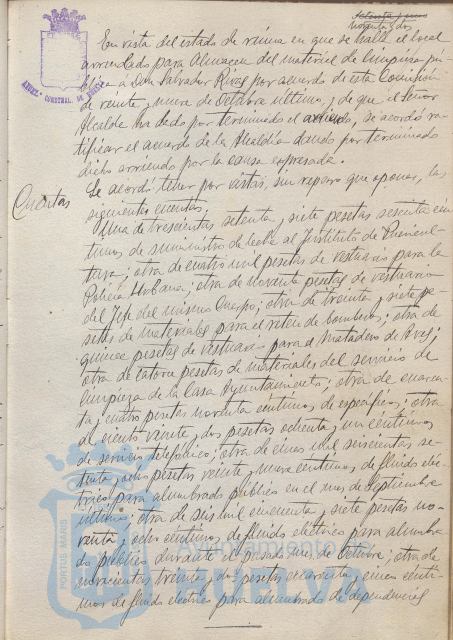 Setenta y uno
Noventa y dos
En vista del estado de ruina en que se halla el local
arrendado para Almacen del material de limpieza pú-
blica a Don Salvador Rivas por acuerdo de esta Comisión
de veinte y nueve de Octubre último, y de que el Señor
Alcalde ha dado por terminado el arriendo, se acordó ra-
tificar el acuerdo de la Alcaldía dando por terminado
dicho arriendo por la causa expresada.
Cuentas
Se acordó tener por vistas, sin reparo que oponer, las
siguientes cuentas.
Una de trescientas setenta y siete pesetas sesenta cén-
timos de suministro de leche al Instituto de Puericul-
tura; otra de cuatro mil pesetas de vestuario para la
Policía Urbana; otra de noventa pesetas de vestuario
del Jefe del mismo Cuerpo; otra de treinta y siete pe-
setas de materiales para el reten de bomberos; otra de
quince pesetas de vestuario para el Matadero de Aves;
otra de catorce pesetas de materiales del servicio de
limpieza de la Casa Ayuntamiento; otra de cuaren-
ta y cuatro pesetas noventa céntimos de específicos; otra
de ciento veinte y dos pesetas ochenta y un céntimos
de servicio telefónico; otra de cinco mil seiscientas se-
tenta y ocho pesetas veinte y nueve céntimos de fluido eléc-
trico para alumbrado público en el mes de Septiembre
último; otra de seis mil cincuenta y siete pesetas no-
venta y ocho céntimos de fluido electrico para alumbra-
do público durante el pasado mes de Octubre; otra de
novecientas treinta y dos pesetas cincuenta y cinco cénti-
mos de fluido electrico para alumbrado de dependencias
PORTUS MARIS